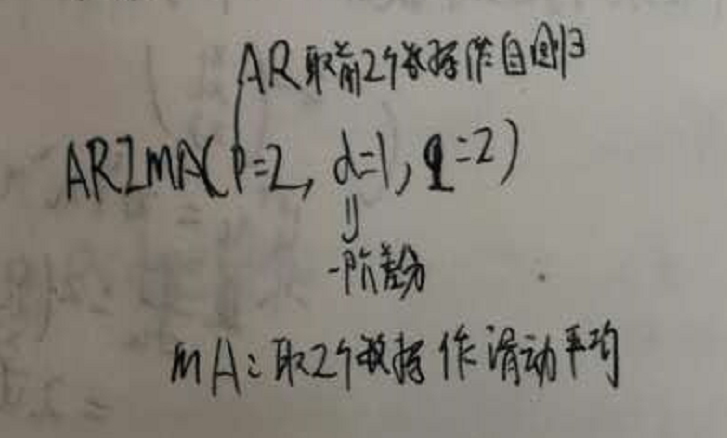 AR取前2个数据作自回归
ARIMA(p=2, d=1, q=2)
一阶差分
MA:取2个数据作滑动平均